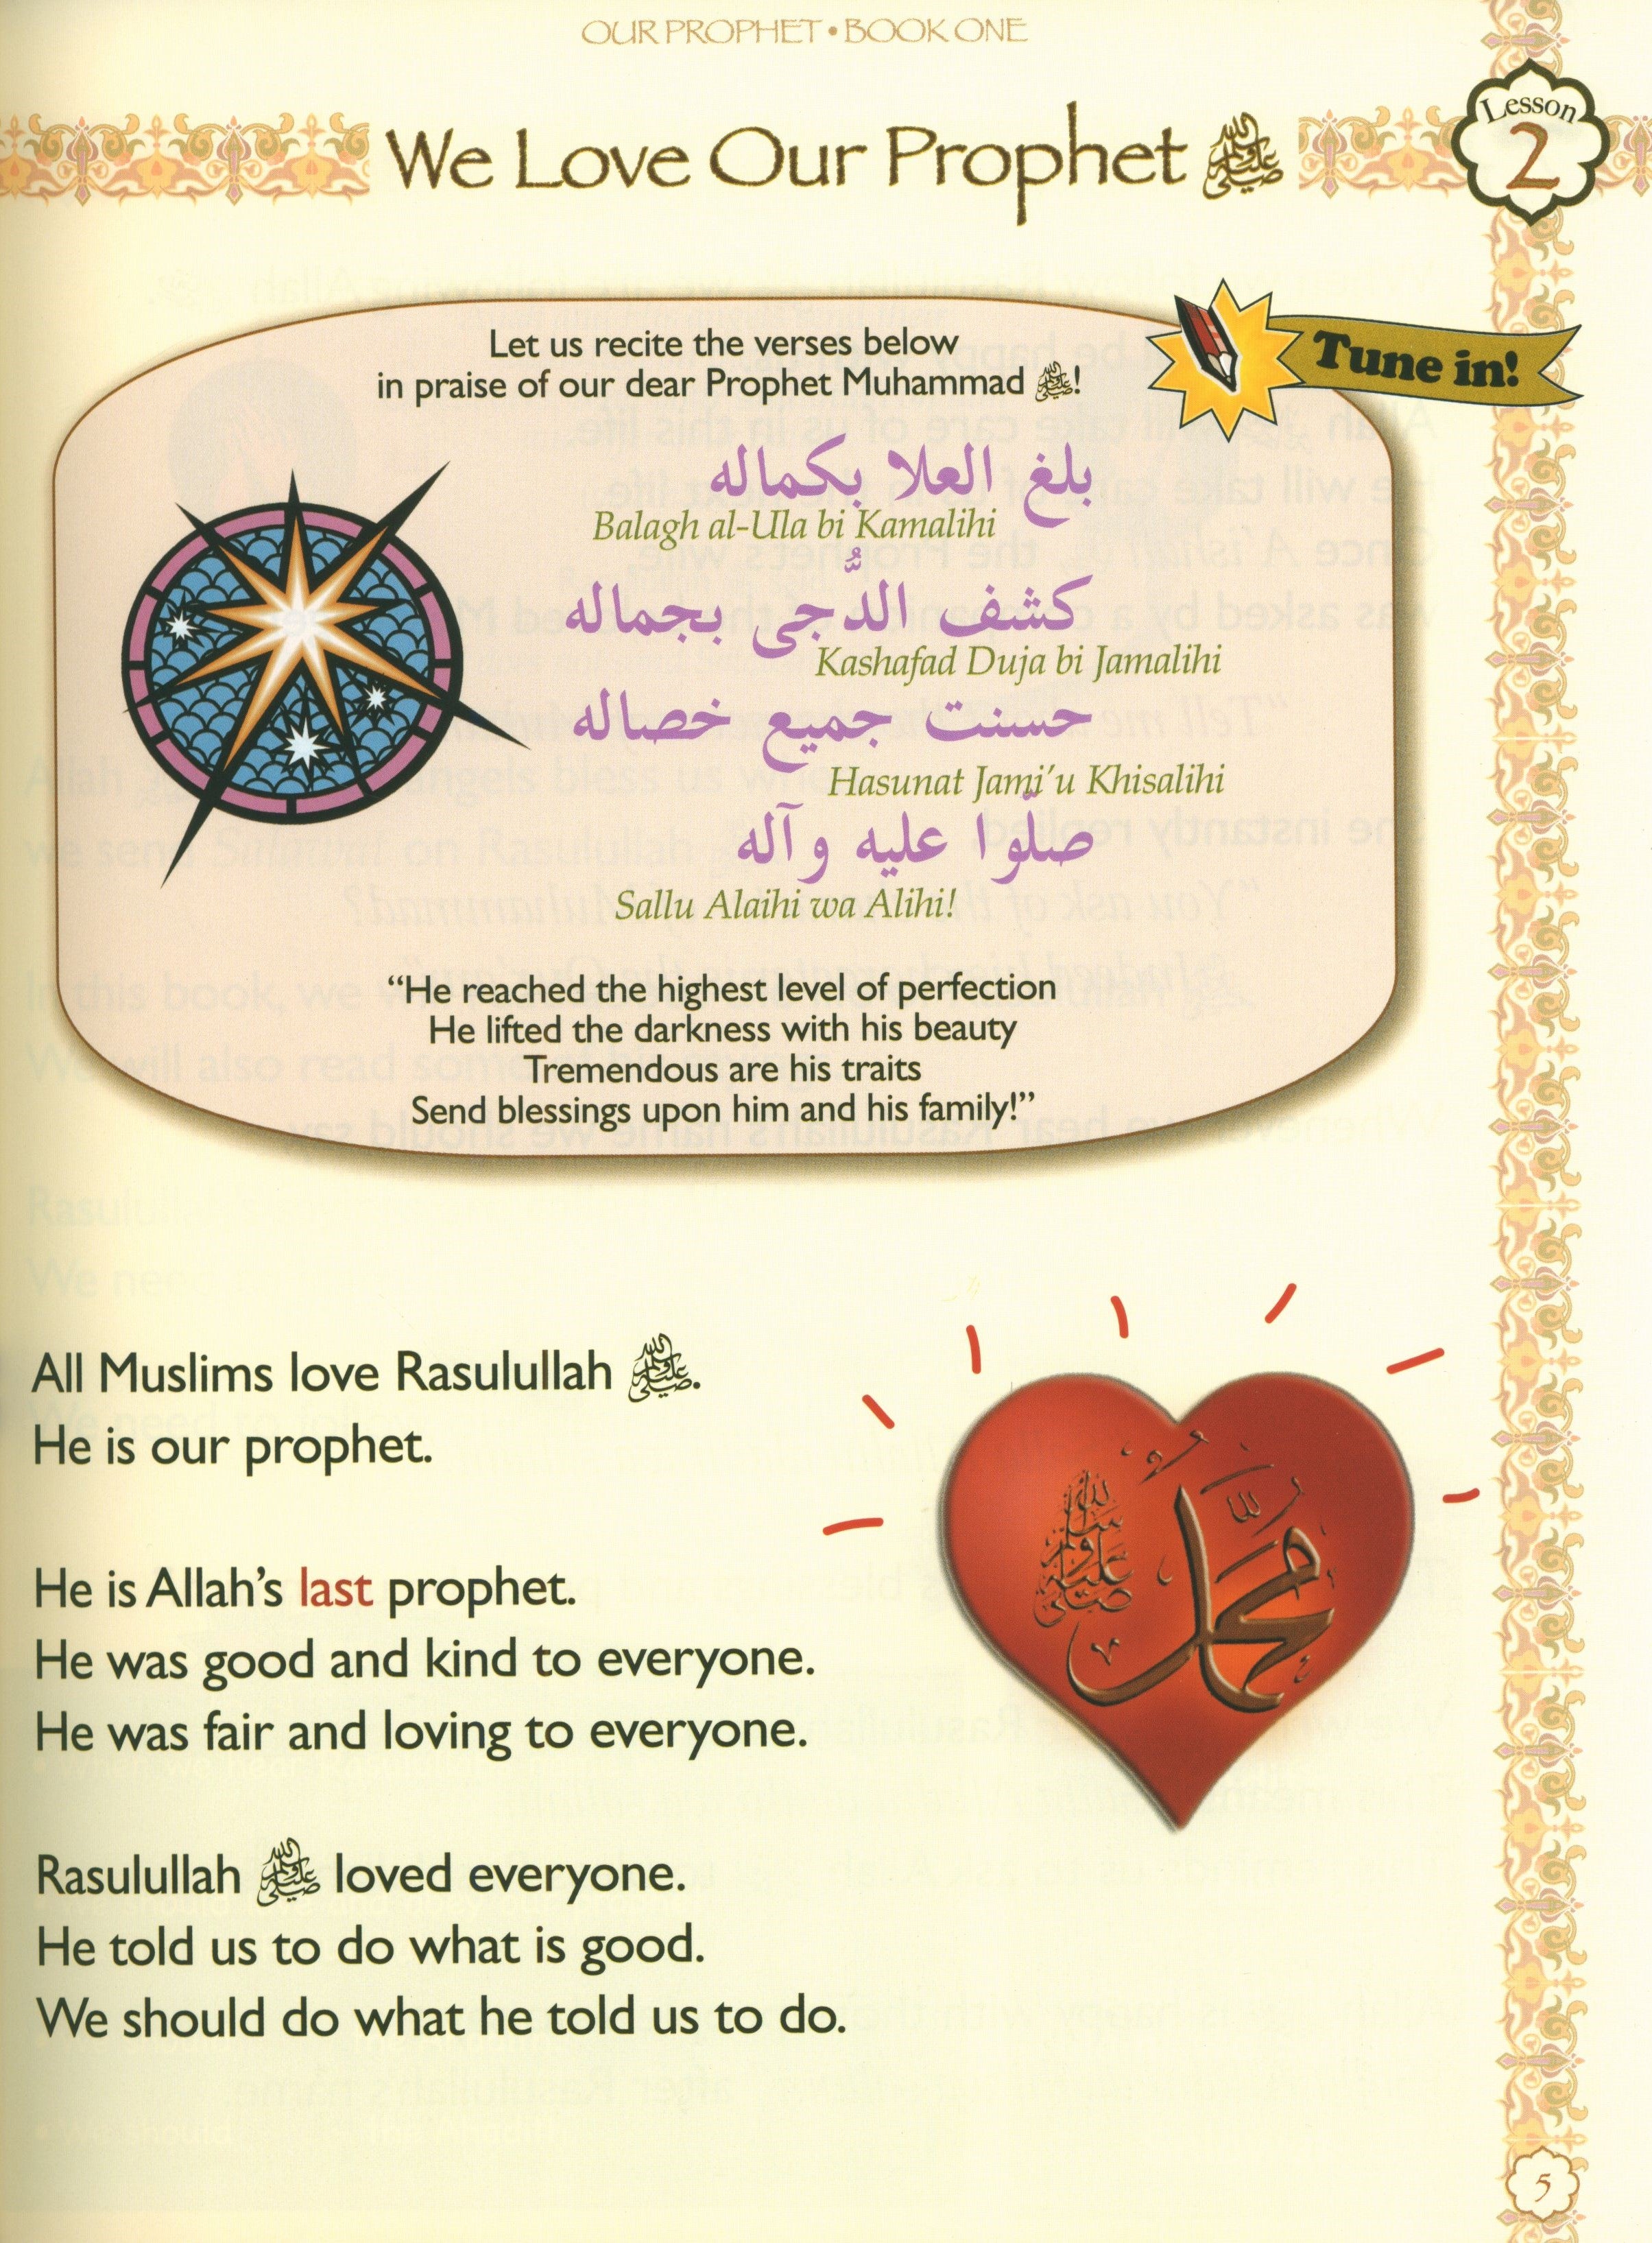 OUR PROPHET • BOOK ONE
We Love Our Prophet ﷺ
Lesson
2
Tune in!
Let us recite the verses below
in praise of our dear Prophet Muhammad ﷺ!
بلغ العلا بكماله
Balagh al-Ula bi Kamalihi
كشف الدُّجى بجماله
Kashafad Duja bi Jamalihi
حسنت جميع خصاله
Hasunat Jami’u Khisalihi
صلّوا عليه وآله
Sallu Alaihi wa Alihi!
“He reached the highest level of perfection
He lifted the darkness with his beauty
Tremendous are his traits
Send blessings upon him and his family!”
All Muslims love Rasulullah ﷺ.
He is our prophet.
محمد ﷺ
He is Allah’s last prophet.
He was good and kind to everyone.
He was fair and loving to everyone.
Rasulullah ﷺ loved everyone.
He told us to do what is good.
We should do what he told us to do.
5